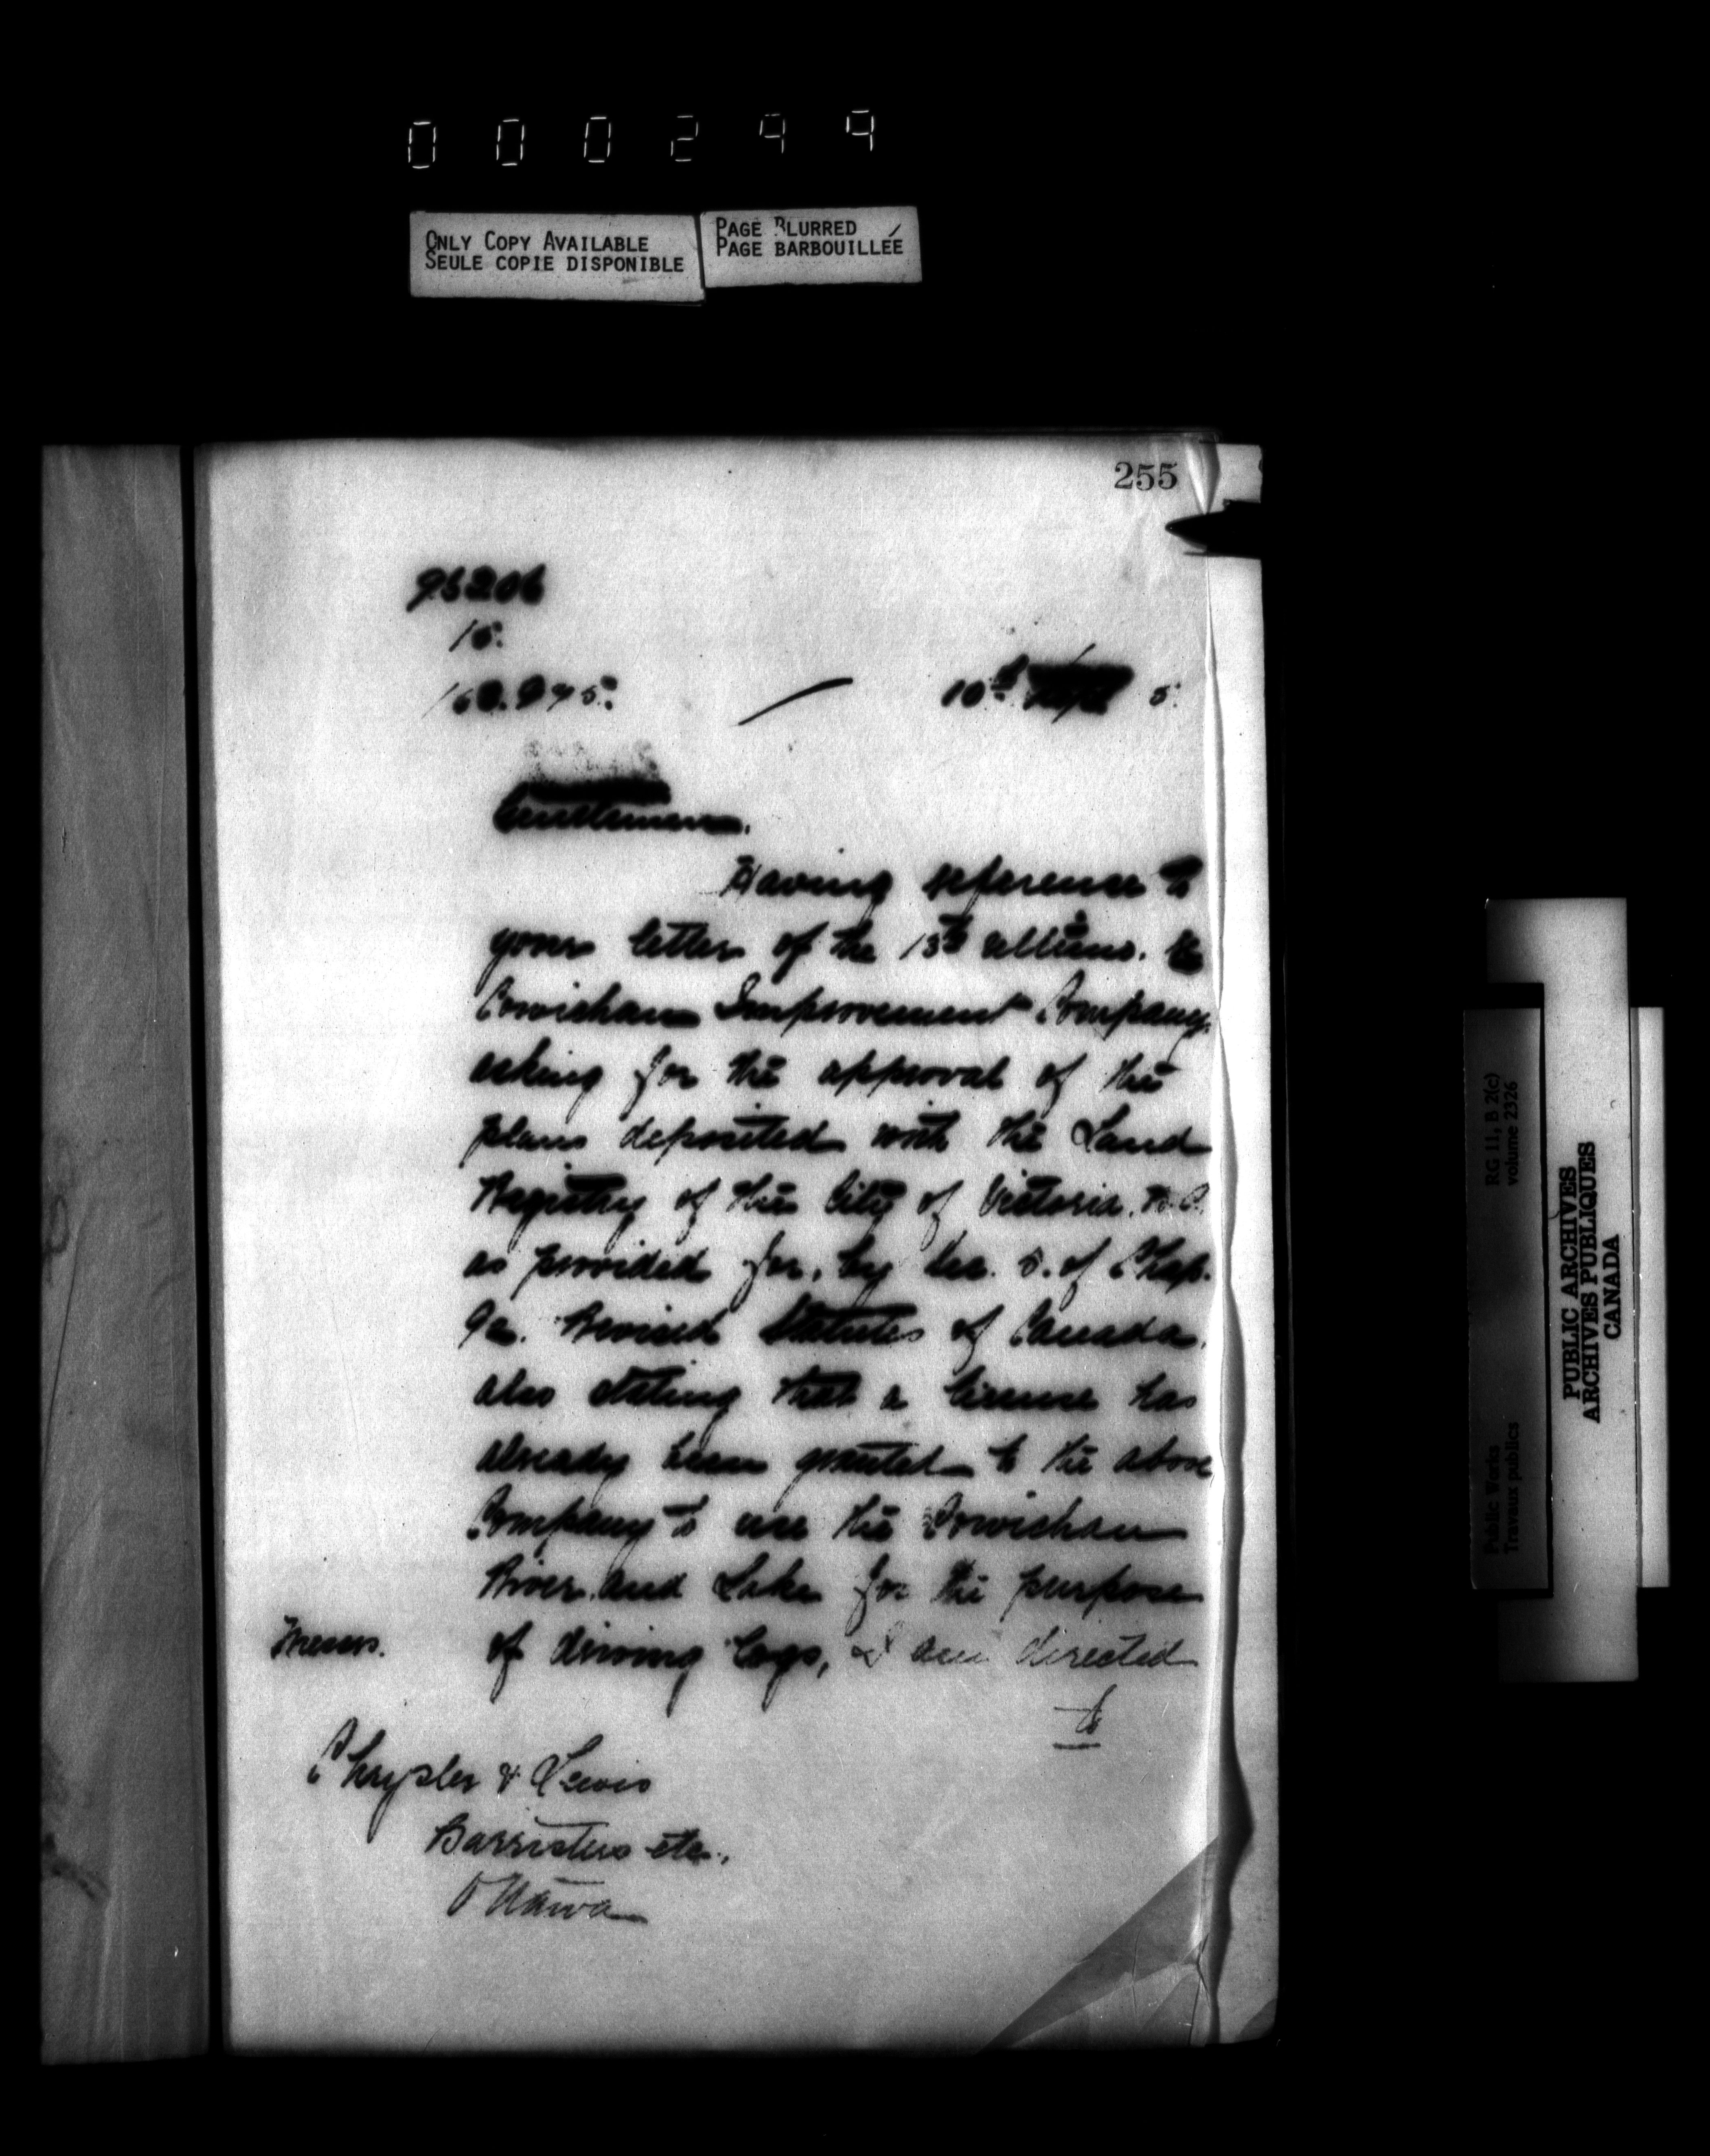 000299
ONLY COPY AVAILABLE
SEULE COPIE DISPONIBLE
PAGE BLURRED
PAGE BARBOUILLÉE
255
15.
10th 5.
Gentlemen.
Having reference to
your letter of the 13th ultimo.
Cowichan Improvement Company,
asking for the approval of the
plans deposited with the Land
Registry of the City of Victoria. B.C.
as provided for, by Sec. 5. of Chap.
92. Revised Statutes of Canada,
also stating that a license has
already been granted to the above
Company to use the Cowichan
River and Lake for the purpose
of driving logs, I am directed
to
Messrs.
Chrysler & Lewis
Barristers etc.,
Ottawa
RG 11, B 2(c)
volume 2326
Public Works
Travaux publics
PUBLIC ARCHIVES
ARCHIVES PUBLIQUES
CANADA